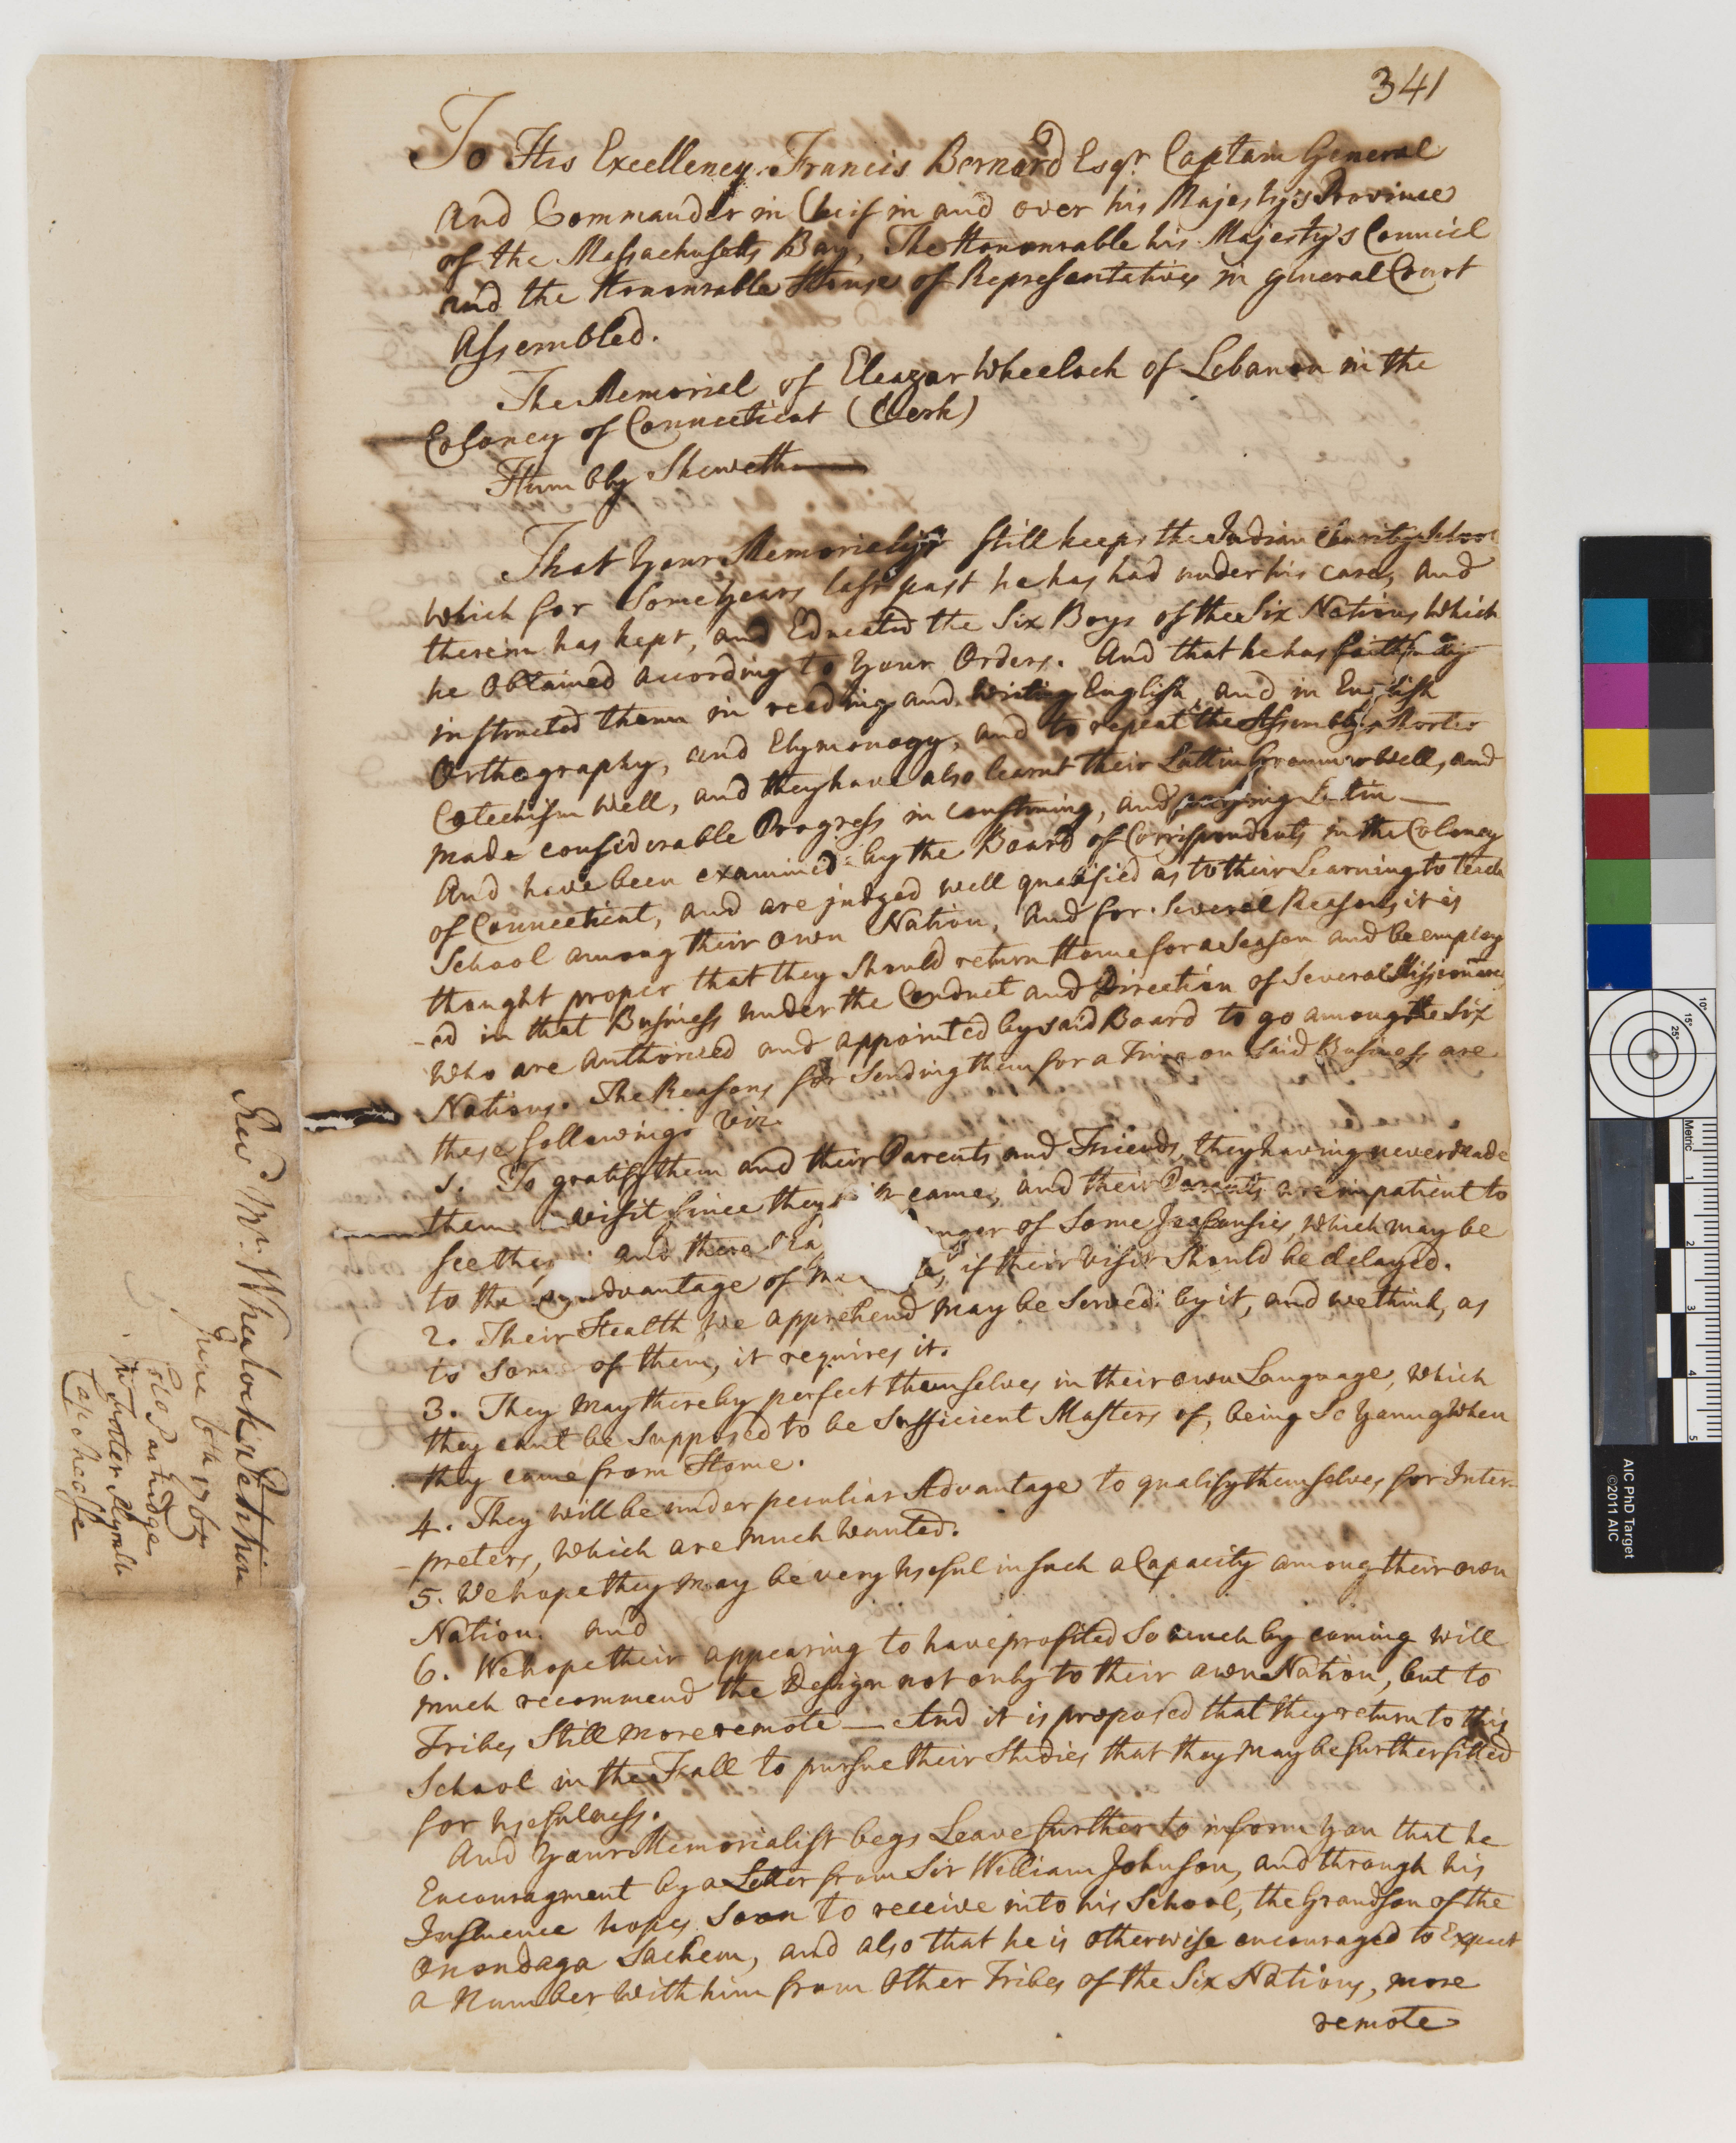 341
To His Excellency Francis Bernard Esqr. Captain General
and Commander in Cheif in and over his Majesty's Province
of the Massachusetts Bay, The Honourable his Majesty's Council
and the Honourable House of Representatives in general Court
Assembled.
The Memorial of Eleazar Wheelock of Lebanon in the
Coloney of Connecticut (Clerk)
Humbly Sheweth
That Your Memorialist still keeps the Indian Charity School
which for Some Years last past he has had under his care, and
therein has kept, and Educated the Six Boys of the Six Nations which
he Obtained according to Your Orders. And that he has faithfully
instructed them in reeding and writing English, and in English
Orthography, and Etymonogy, and to repeat the Assembly's Shorter
Catechism well, and they have also learnt their Lattin Grammer well, and
made considerable Progress in construing, and parsing Latin
And have been examined by the Board of Corrispondents in the Coloney
of Connecticut, and are judged well qualified as to their Learning to teach
School among their own Nation, and for Several Reasons it is
thought proper that they Should return Home for a Season and be employ
-ed in that Business under the Conduct and Direction of Several Missionaries
Who are authorised and appointed by said Board to go among the Six
Nations. The Reasons for Sending them for a Time on said Business are
these following. viz.
1. To gratify them and their Parents and Friends, they having never made
them a visit since they came, and their Parents are impatient to
see and there of Some Jealousies, which may be
to the of if their visit Should be delayed.
2. Their Health we apprehend may be Served by it, and we think, as
to Some of them, it requires it.
3. They may thereby perfect themselves in their own Language, which
they cant be Supposed to be Sufficient Masters of, being So Young When
they came from Home.
4. They will be under peculiar Advantage to qualify themselves for Inter-
-preters, which are much wanted.
5. We hope they may be very useful in such a Capacity among their own
Nation. and
6. We hope their appearing to have profited So much by coming will
much recommend the Design not only to their own Nation, but to
Tribes Still more remote — And it is proposed that they return to this
School in the Fall to pursue their Studies that they may be further fitted
for usefulness.
And Your Memorialist begs Leave further to inform You that he
Encouragment by a Letter from Sir William Johnson, and through his
Influence hopes Soon to receive into his School, the Grandson of the
Onondaga Sachem, and also that he is otherwise encouraged to Expect
a Number with him from Other Tribes of the Six Nations, more
remote
Revd Mr. Whealock's Petition
June 6th 1765
Colo Partridge
Mr Foster Plymth
Cap Sheaffe
AIC PhD Target
©2011 AIC
Metric
1
2
3
4
5
10°
15°
25°